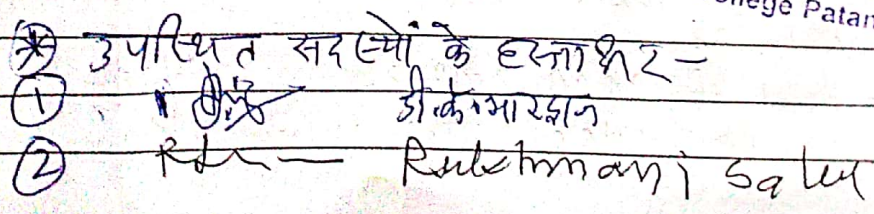 llege Patan
* उपस्थित सदस्यों के हस्ताक्षर -
① डी.के.भारद्वाज
② Rukhmani Sahu